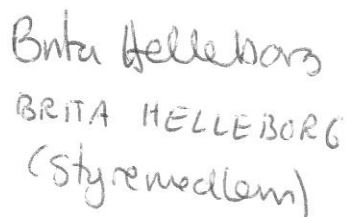 Brita Helleborg
BRITA HELLEBORG
(styremedlem)